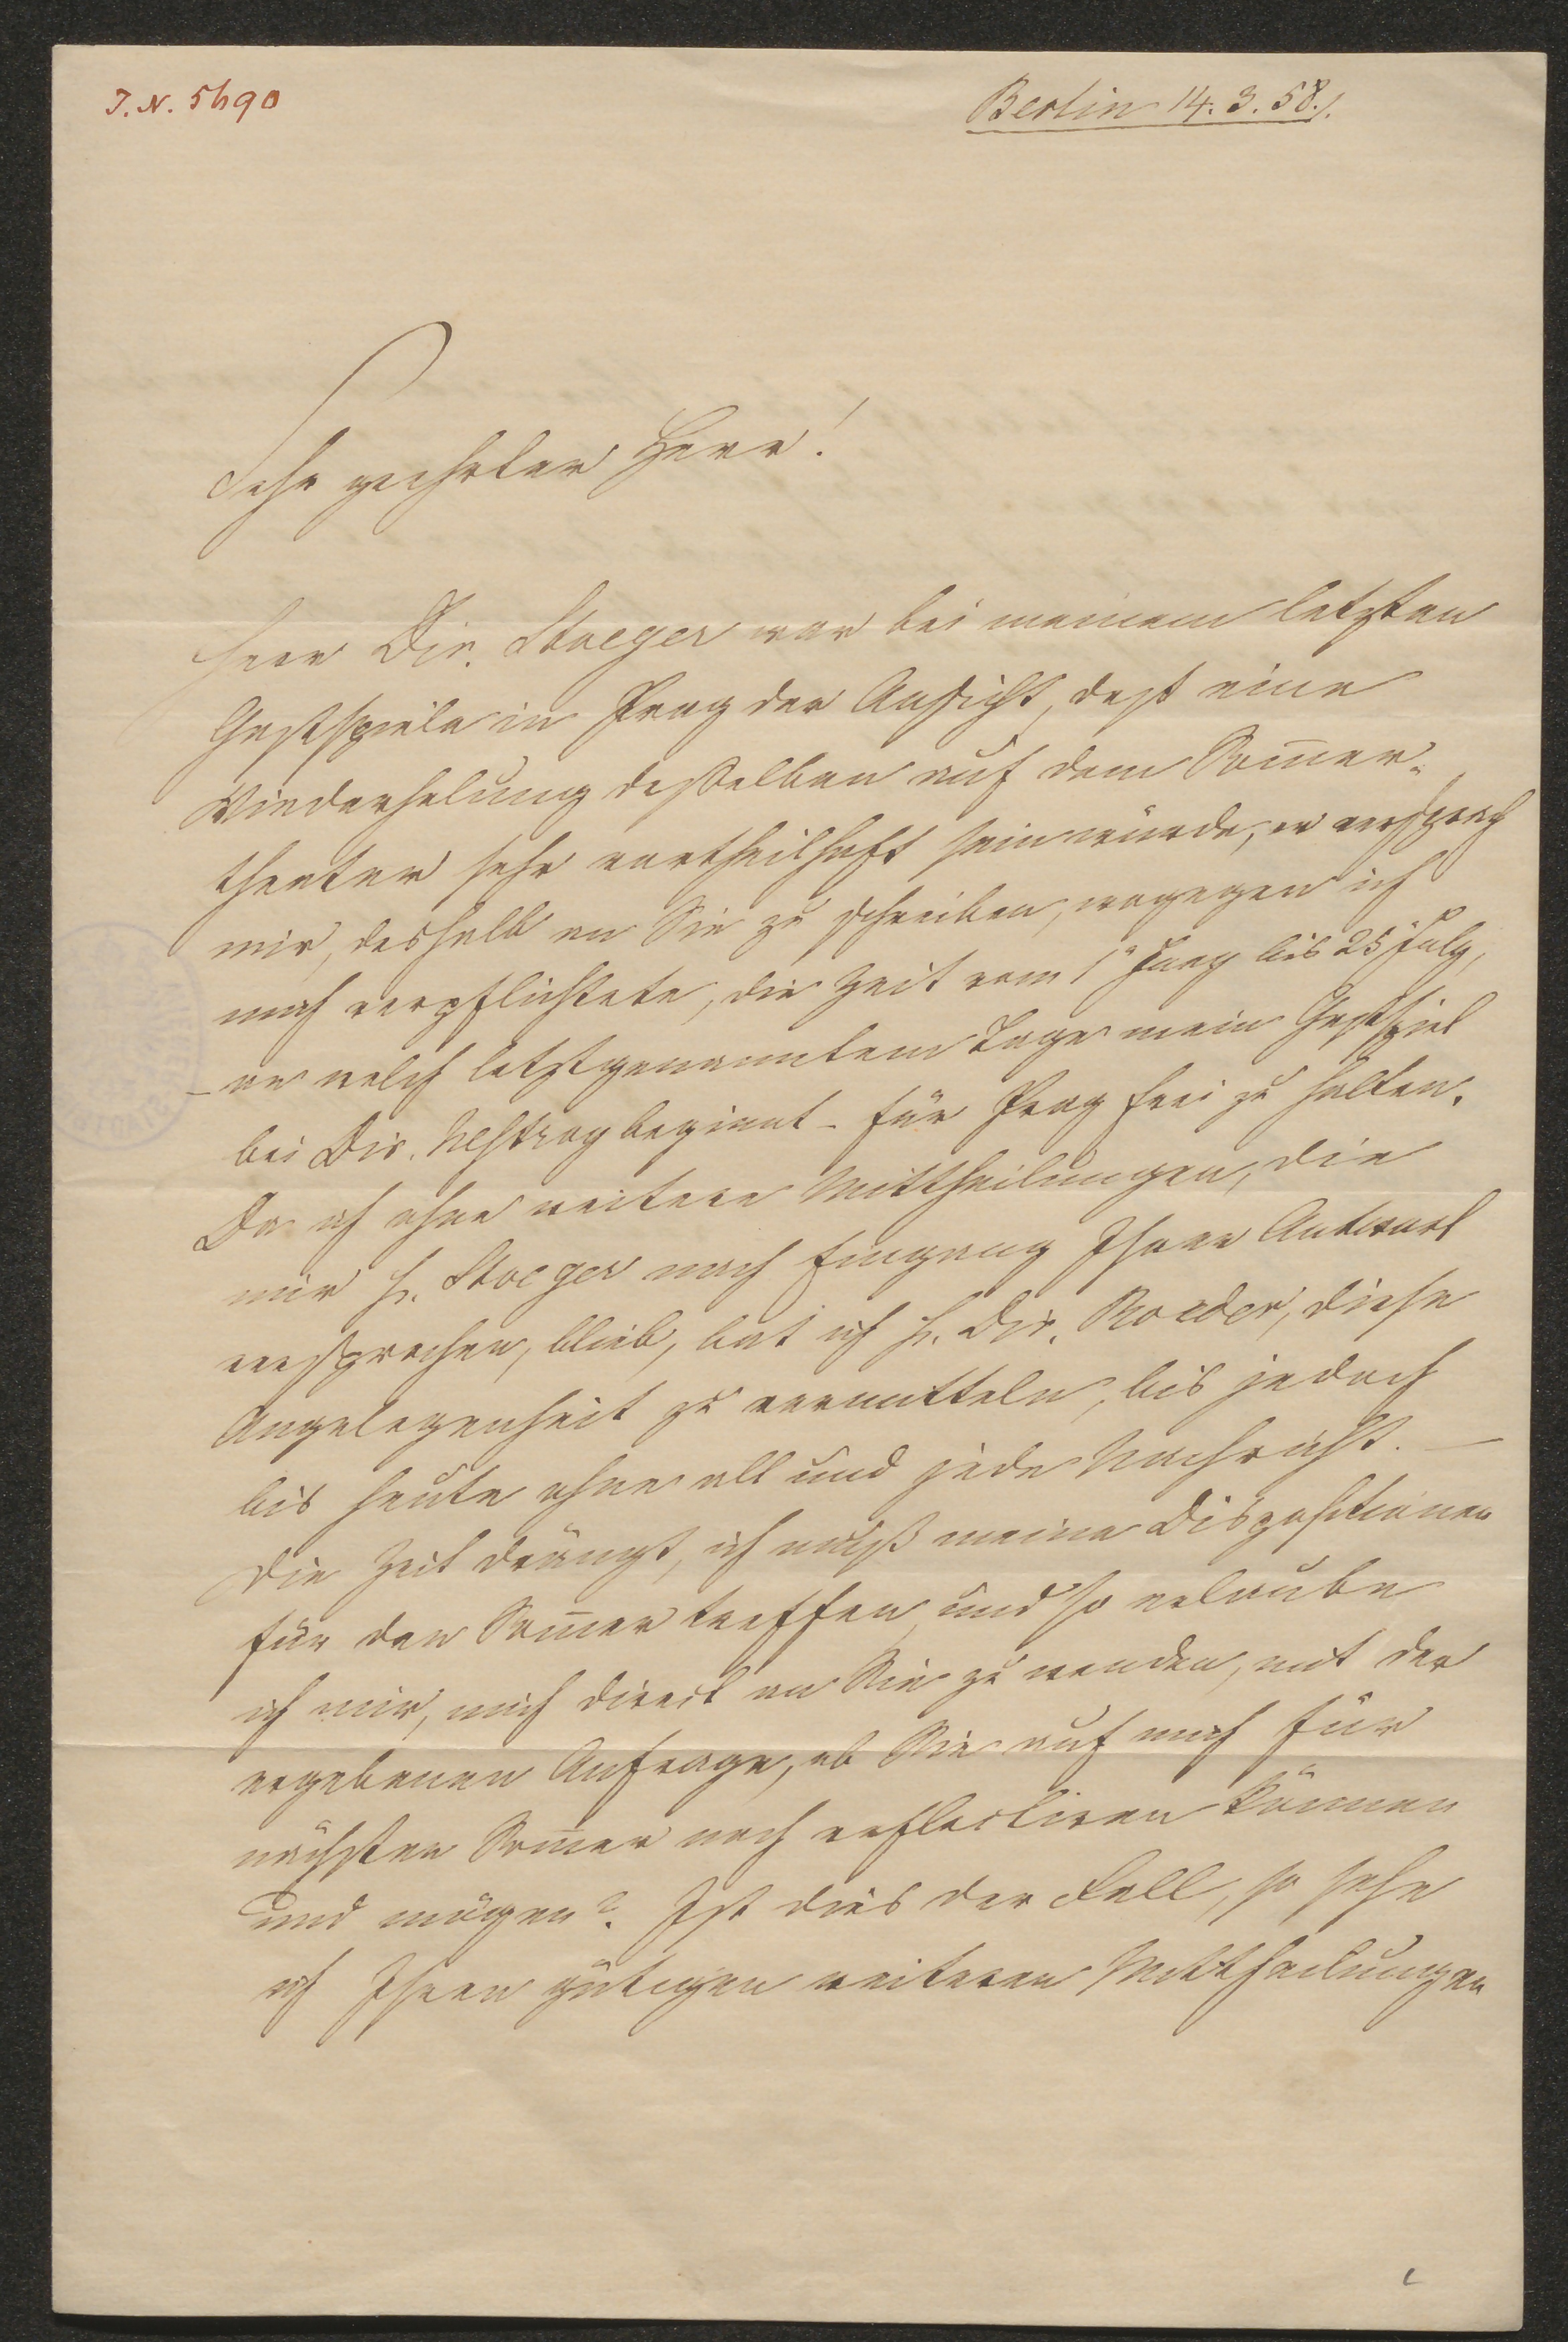 J.N. 5490
Berlin 14. 3. 58.
Sehr geehrter Herr!
Herr Dir. Stoeger war bei meinem letzten
Gastspiele in Prag der Ansicht, daß eine
Wiederholung desselben auf dem Som̄er-
theater sehr vortheilhaft sein würde, er versprach
mir, deshalb an Sie zu schreiben, wogegen ich
mich verpflichtete, die Zeit vom 1ⁿ Juny bis 25 July,
– an welch letztgenanntem Tage mein Gastspiel
bei Dir. Nestroy beginnt – für Prag frei zu halten.
Da ich ohne weitere Mittheilungen, die
mir H. Stoeger nach Eingang Ihrer Antwort
versprochen, blieb, bat ich H. Dir. Roeder, diese
Angelegenheit zu vermitteln, bis jedoch
bis heute ohne all und jede Nachricht. —
Die Zeit drängt, ich muß meine Dispositionen
für den Som̄er treffen und so erlaube
ich mir, mich direct an Sie zu wenden, mit der
ergebenen Anfrage, ob Sie auf mich für
nächsten Som̄er noch reflectiren können
und mögen? Ist dies der Fall, so sehe
ich Ihren gütigen weiteren Mittheilungen